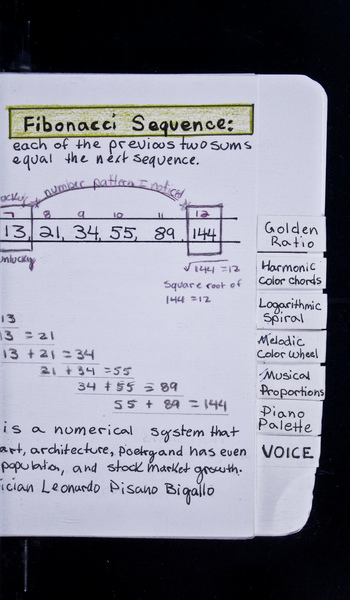 Fibonacci Sequence:
each of the previous two sums
equal the next sequence.
number pattern I noticed
7 8 9 10 11 12
13, 21, 34, 55, 89, 144
unlucky
√144 = 12
Square root of
144 = 12
13
13 = 21
13 + 21 = 34
21 + 34 = 55
34 + 55 = 89
55 + 89 = 144
is a numerical system that
art, architecture, poetry and has even
population, and stock market growth.
ician Leonardo Pisano Bigallo
Golden
Ratio
Harmonic
Color chords
Logarithmic
Spiral
Melodic
Color wheel
Musical
Proportions
Piano
Palette
VOICE